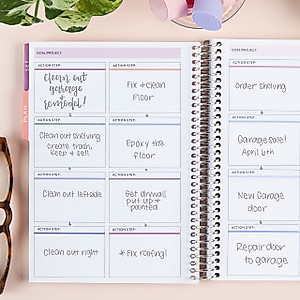 GOAL/PROJECT:
ACTION STEP:
Clean out
garage &
remodel!
ACTION STEP:
Clean out shelving
create trash,
keep & sell
ACTION STEP:
Clean out leftside
ACTION STEP:
Clean out right
ACTION STEP:
Fix & clean
floor
ACTION STEP:
Epoxy the
floor
ACTION STEP:
Get drywall
put up &
painted
ACTION STEP:
* Fix roofing!
GOAL/PROJECT:
ACTION STEP:
Order shelving
ACTION STEP:
Garage sale!
April 6th
ACTION STEP:
New Garage
door
ACTION STEP:
Repair door
to garage
SET
PLAN